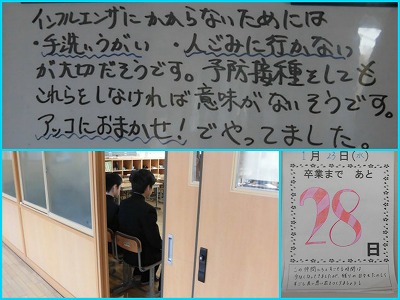 インフルエンザにかからないためには
・手洗いうがい ・人ごみに行かない
が大切だそうです。予防接種をしても
これらをしなければ意味がないそうです。
アッコにおまかせ！でやってました。
1月23日(水)
卒業まで あと
28
日